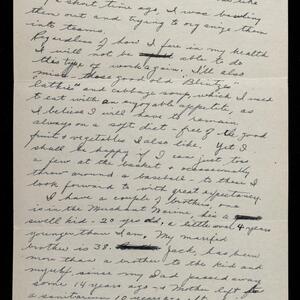 a short time ago, I was bawling
them out and trying to organize them
into teams.
Regardless of how I fare in my health
I will not be able to do
this type of work again. I'll also
miss those good old Blintzes
"latkie" and cabbage soup, which I used
to eat with an enjoyable appetite, as
I believe I will have to remain
always on a soft diet - free of the good
fruit & vegetables I also like. Yet I
shall be happy if I can just toss
a few at the basket & occasionally
throw around a baseball - to these I
look forward to with great expectancy.
I have a couple of brothers, one
is in the Merchant Marine, he's a
swell kid - 20 yrs old, a little over 4 years
younger than I am. My married
brother is 38. Jack, has been
more than a brother to the kid and
myself, since my Dad passed away
some 14 years ago & Mother left
a sanitarium 10 years